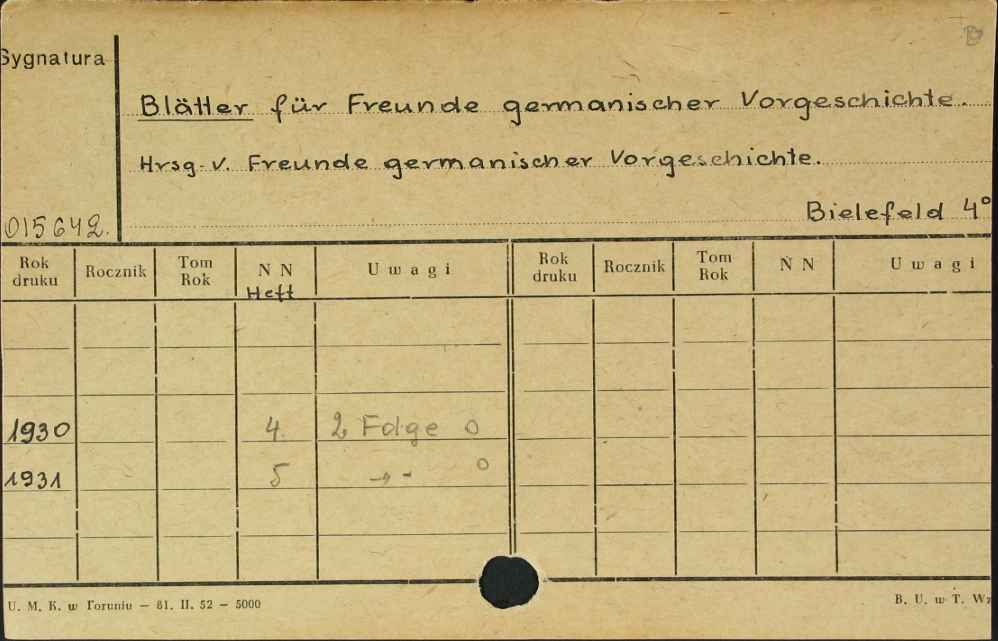 Sygnatura
Blätter für Freunde germanischer Vorgeschichte.
Hrsg. v. Freunde germanischer Vorgeschichte.
Bielefeld 4°
015642.
Rok druku Rocznik Tom Rok N N Heft U w a g i Rok druku Rocznik Tom Rok N N U w a g i
1930 4. 2 Folge 0
1931 5 -"- 0
U. M. K. w Toruniu — 81. II. 52 — 5000
B. U. w T. Wz